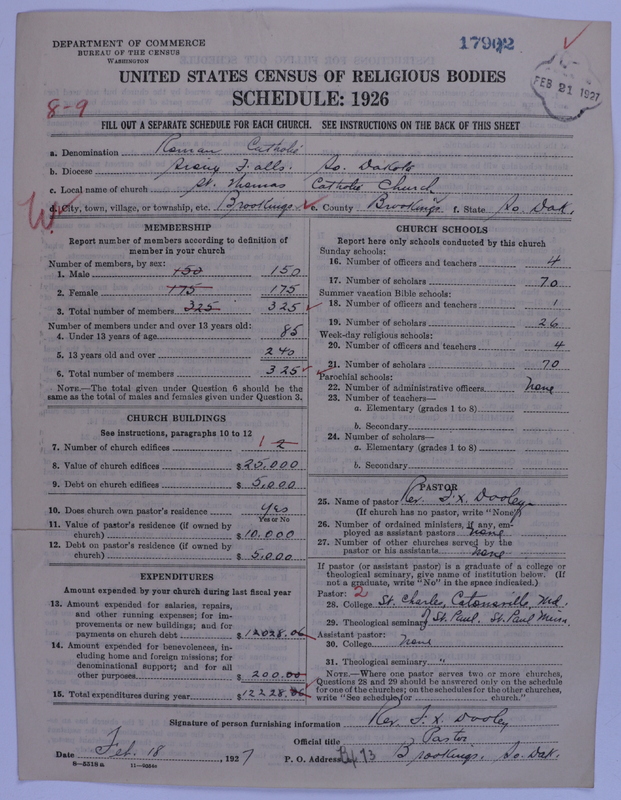 DEPARTMENT OF COMMERCE
BUREAU OF THE CENSUS
WASHINGTON
17902
FEB 21 1927
UNITED STATES CENSUS OF RELIGIOUS BODIES
SCHEDULE: 1926
8-9
FILL OUT A SEPARATE SCHEDULE FOR EACH CHURCH. SEE INSTRUCTIONS ON THE BACK OF THIS SHEET
a. Denomination Roman Catholic
b. Diocese Falls. So. Dakota
c. Local name of church St. Thomas Catholic Church
d. City, town, village, or township, etc. Brookings e. County Brookings f. State So. Dak.
MEMBERSHIP
Report number of members according to definition of member in your church
Number of members, by sex:
1. Male 150 150
2. Female 175 175
3. Total number of members 325 325
Number of members under and over 13 years old:
4. Under 13 years of age 85
5. 13 years old and over 240
6. Total number of members 325
NOTE.—The total given under Question 6 should be the same as the total of males and females given under Question 3.
CHURCH BUILDINGS
See instructions, paragraphs 10 to 12
7. Number of church edifices 1 2
8. Value of church edifices $25,000
9. Debt on church edifices $5,000
10. Does church own pastor's residence? Yes
Yes or No
11. Value of pastor's residence (if owned by church) $10.000
12. Debt on pastor's residence (if owned by church) $5.000
EXPENDITURES
Amount expended by your church during last fiscal year
13. Amount expended for salaries, repairs, and other running expenses; for improvements or new buildings; and for payments on church debt $12028.06
14. Amount expended for benevolences, including home and foreign missions; for denominational support; and for all other purposes 200.00
15. Total expenditures during year $12228.06
CHURCH SCHOOLS
Report here only schools conducted by this church
Sunday schools:
16. Number of officers and teachers 4
17. Number of scholars 70
Summer vacation Bible schools:
18. Number of officers and teachers 1
19. Number of scholars 26
Week-day religious schools:
20. Number of officers and teachers 4
21. Number of scholars 70
Parochial schools:
22. Number of administrative officers None
23. Number of teachers—
a. Elementary (grades 1 to 8)
b. Secondary
24. Number of scholars—
a. Elementary (grades 1 to 8)
b. Secondary
PASTOR
25. Name of pastor Rev. F. X. Dooley
(If church has no pastor, write "None")
26. Number of ordained ministers, if any, employed as assistant pastors None
27. Number of other churches served by the pastor or his assistants None
If pastor (or assistant pastor) is a graduate of a college or theological seminary, give name of institution below. (If not a graduate, write "No" in the space indicated.)
Pastor: 2
28. College St. Charles, Catonsville, Md.
29. Theological seminary St. Paul. St. Paul Minn.
Assistant pastor:
30. College None
31. Theological seminary "
NOTE.—Where one pastor serves two or more churches, Questions 28 and 29 should be answered only on the schedule for one of the churches; on the schedules for the other churches, write "See schedule for church."
Signature of person furnishing information Rev. F. X. Dooley
Official title Pastor
Date Feb. 18, 1927 P. O. Address Brookings. So. Dak.
8—5318a 11—9204